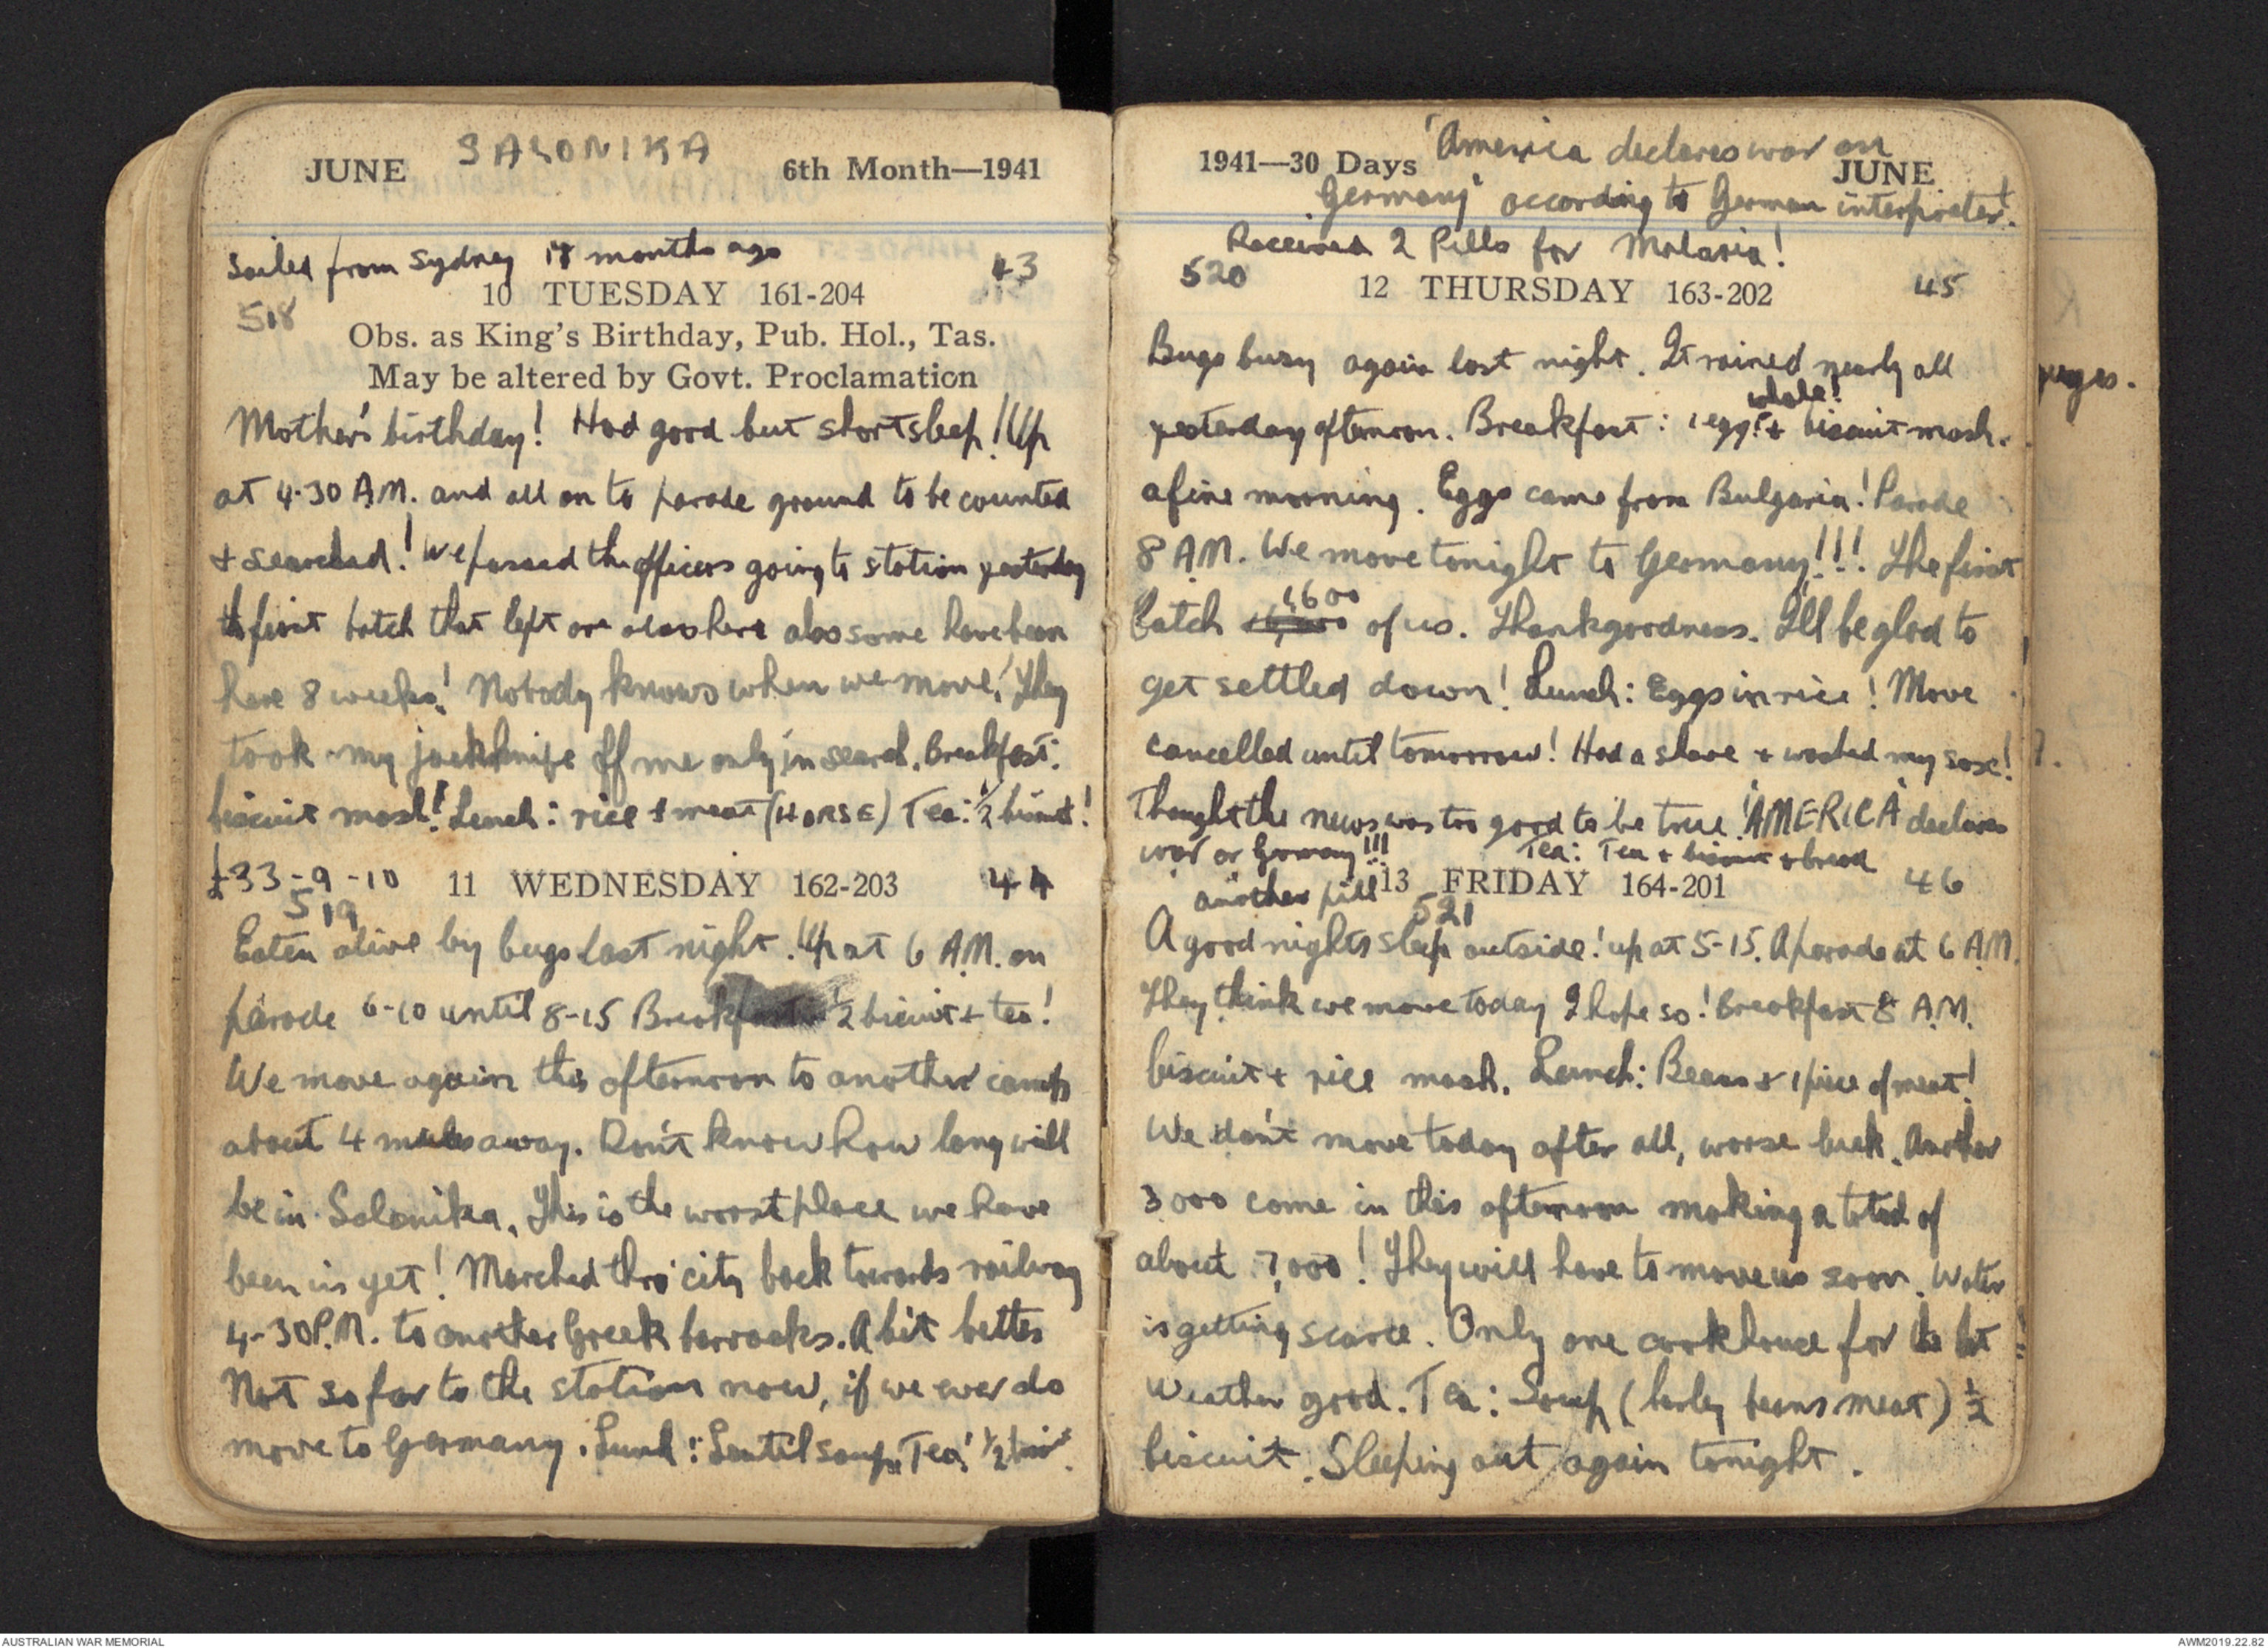 SALONIKA
JUNE 6th Month—1941
Sailed from Sydney 17 months ago 43
10 TUESDAY 161-204
518
Obs. as King's Birthday, Pub. Hol., Tas.
May be altered by Govt. Proclamation
Mother's birthday! Had good but short sleep! Up
at 4-30 A.M. and all on to parade ground to be counted
+ searched! We passed the officers going to station yesterday
the first batch that left are also here also some have been
here 8 weeks! Nobody knows when we move! They
took my jackknife off me only in search. Breakfast:
biscuit mash! Lunch: rice + meat (HORSE) Tea: 1/2 biscuit!
£33-9-10 11 WEDNESDAY 162-203 44
519
Eaten alive by bugs last night. Up at 6 A.M. on
parade 6-10 until 8-15 Breakfast: 1/2 biscuit + tea!
We move again this afternoon to another camp
about 4 miles away. Don't know how long will
be in Salonika. This is the worst place we have
been in yet! Marched thro' city back towards railway
4-30 P.M. to another Greek barracks. A bit better
Not so far to the station now, if we ever do
move to Germany. Lunch: Lentil soup. Tea: 1/2 bis
'America declares war on
1941—30 Days JUNE
Germany' according to German interpreter!
Received 2 Pills for Malaria!
520 12 THURSDAY 163-202 45
Bugs busy again last night. It rained nearly all
whole!
yesterday afternoon. Breakfast: 1 egg! + biscuit mash.
a fine morning. Eggs came from Bulgaria! Parade
8 A.M. We move tonight to Germany!!! The first
1,600
batch of us. Thank goodness. I'll be glad to
get settled down! Lunch: Eggs in rice! Move
cancelled until tomorrow! Had a shave + washed my sox!
Thought the news was too good to be true! 'AMERICA' declares
war on Germany!!! Tea: Tea + biscuit + bread
another pill 13 FRIDAY 164-201 46
521
A good nights sleep outside! up at 5-15. A parade at 6 A.M.
They think we move today I hope so! Breakfast 8 A.M.
biscuit + rice mash. Lunch: Beans + 1 piece of meat!
We don't move today after all, worse luck. Another
3,000 come in this afternoon making a total of
about 7,000! They will have to move us soon. Water
is getting scarce. Only one cookhouse for the lot
Weather good. Tea: Soup (barley beans meat) 1/2
biscuit. Sleeping out again tonight.
AUSTRALIAN WAR MEMORIAL
AWM2019.22.82